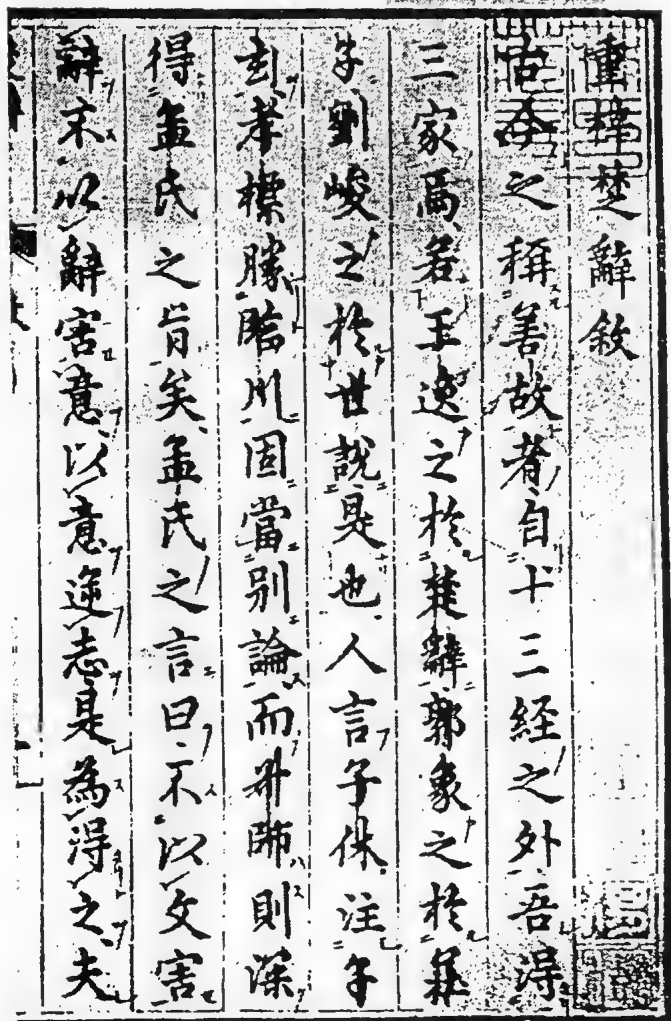 重梓楚辭敘
古今之稱善故者自十三経之外吾淂
三家焉若王逸之於楚辭郭象之於莊
子劉峻之於世說是也人言子休注子
玄孝標勝臨川固當别論而叔師則深
得孟氏之旨矣孟氏之言曰不以文害
辭不以辭害意以意逆志是為淂之夫